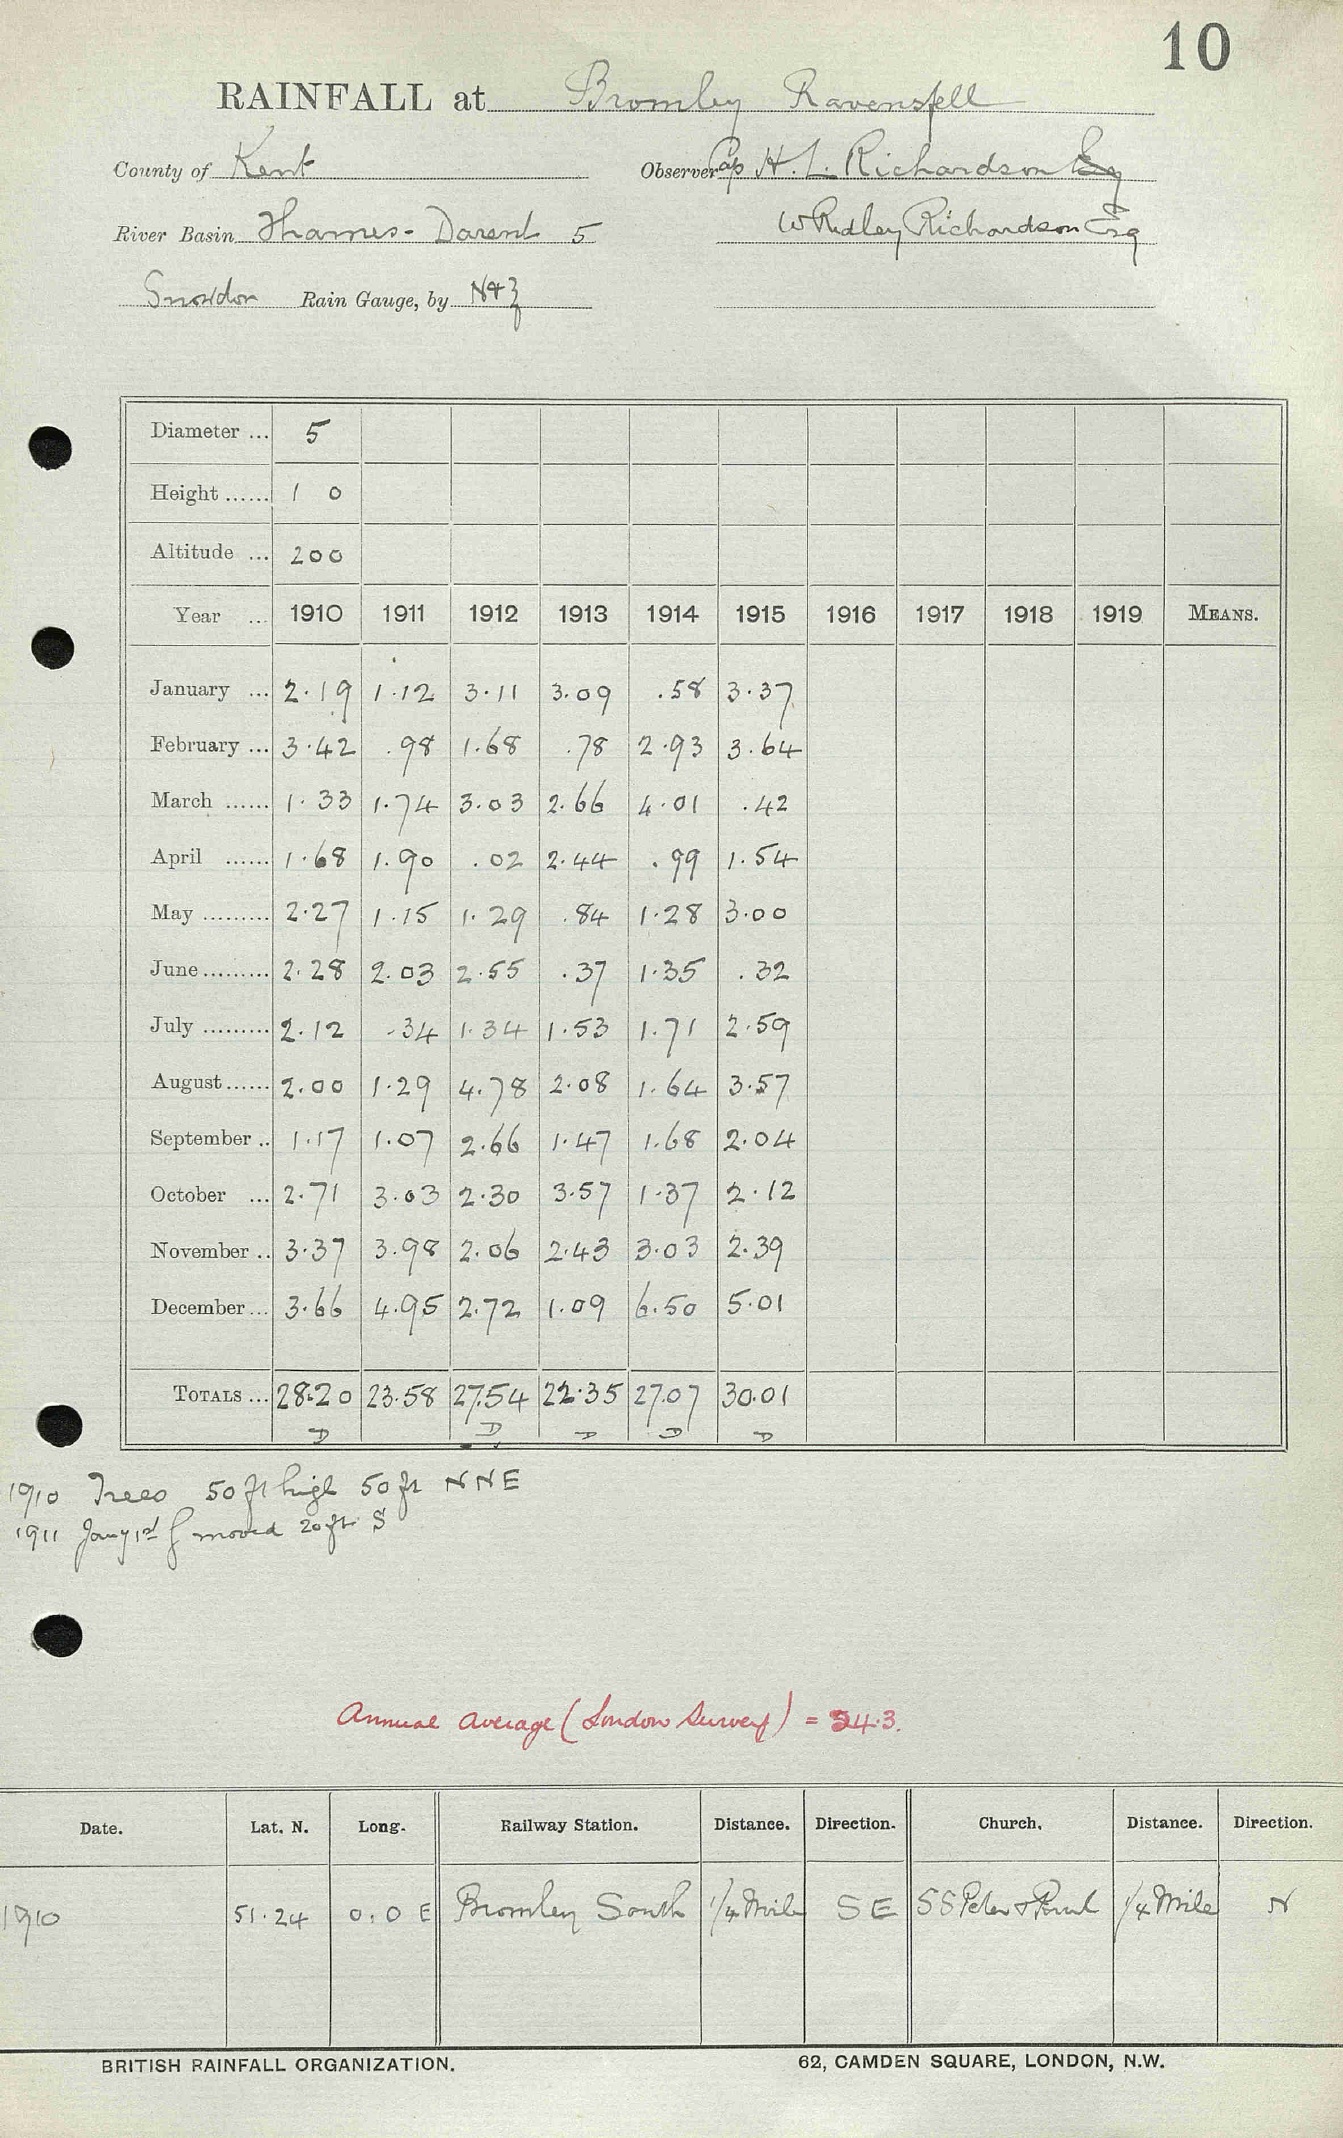 10
RAINFALL at Bromley Ravensfell
County of Kent Observer Cap H. L. Richardson Esq
River Basin Thames - Darent 5 W Ridley Richardson Esq
Snowdon Rain Gauge, by N & Z
Diameter ... 5
Height ...... 1 0
Altitude ... 200
Year ... 1910 1911 1912 1913 1914 1915 1916 1917 1918 1919 MEANS.
January ... 2.19 1.12 3.11 3.09 .58 3.37
February ... 3.42 .98 1.68 .78 2.93 3.64
March ...... 1.33 1.74 3.03 2.66 4.01 .42
April ...... 1.68 1.90 .02 2.44 .99 1.54
May ......... 2.27 1.15 1.29 .84 1.28 3.00
June ......... 2.28 2.03 2.55 .37 1.35 .32
July ......... 2.12 .34 1.34 1.53 1.71 2.59
August ...... 2.00 1.29 4.78 2.08 1.64 3.57
September .. 1.17 1.07 2.66 1.47 1.68 2.04
October ... 2.71 3.03 2.30 3.57 1.37 2.12
November .. 3.37 3.98 2.06 2.43 3.03 2.39
December ... 3.66 4.95 2.72 1.09 6.50 5.01
TOTALS ... 28.20 23.58 27.54 22.35 27.07 30.01
D D D D D
1910 Trees 50 ft high 50 ft NNE
1911 Jany 1st G moved 20 ft S
Annual Average (London Survey) = 24.3.
Date. Lat. N. Long. Railway Station. Distance. Direction. Church. Distance. Direction.
1910 51.24 0.0 E Bromley South 1/4 Mile SE SS Peter & Paul 1/4 Mile N
BRITISH RAINFALL ORGANIZATION. 62, CAMDEN SQUARE, LONDON, N.W.